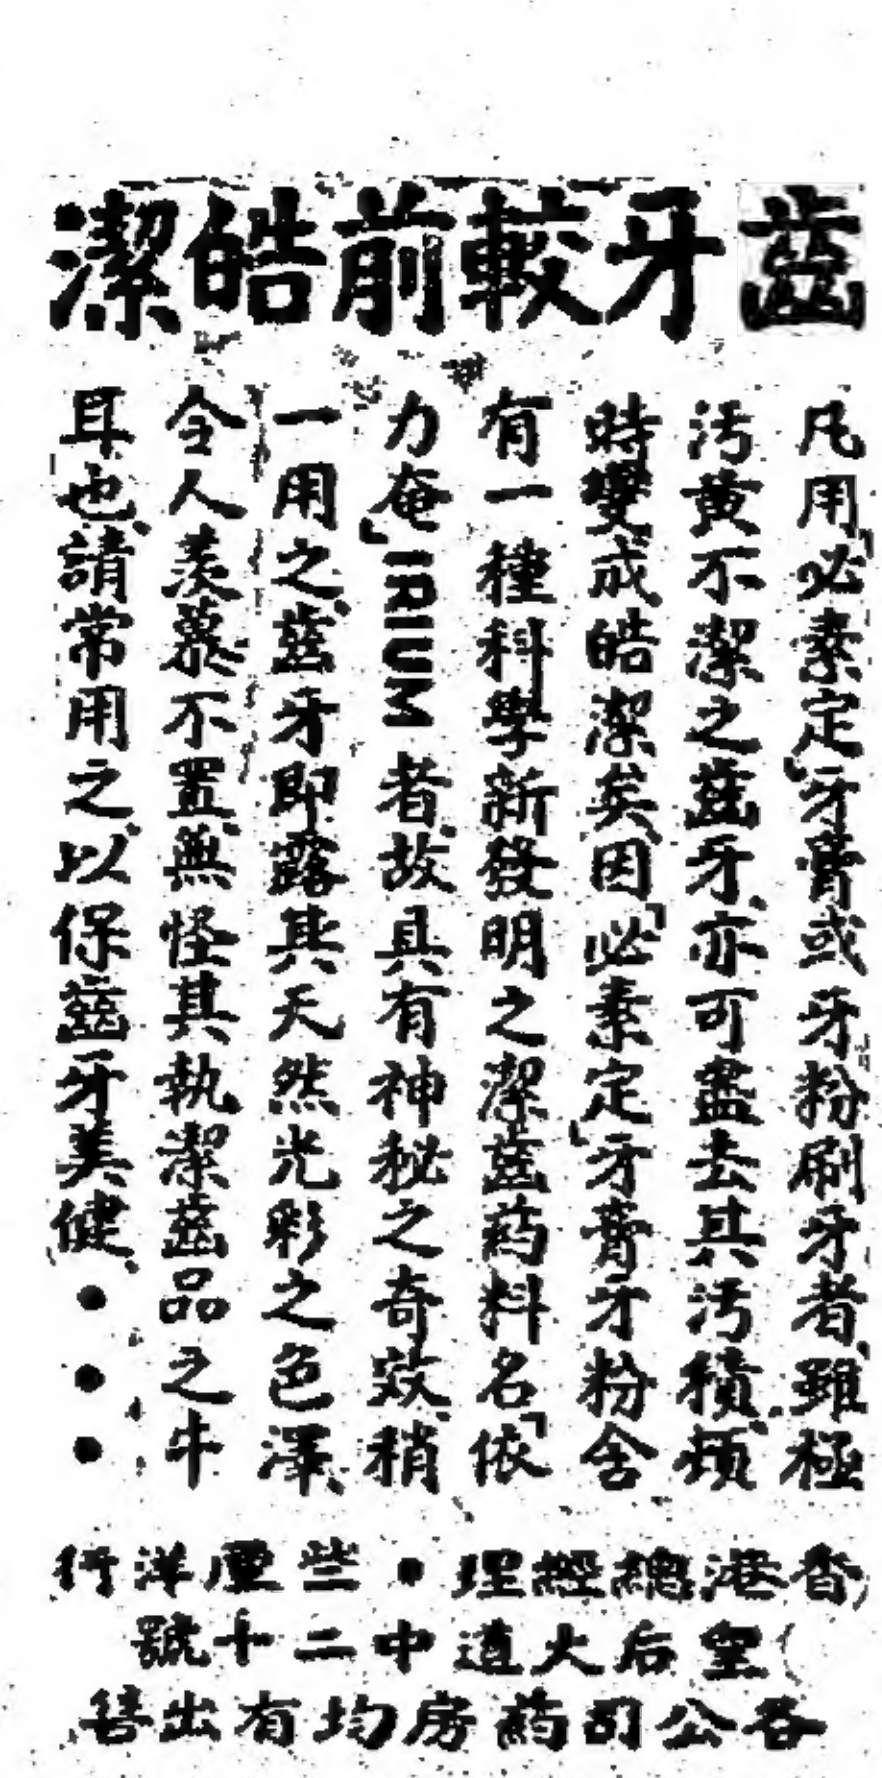 齒牙較前皓潔
凡用「必素定」牙膏或牙粉刷牙者、雖極
污黃不潔之齒牙、亦可盡去其污積、頰
時變成皓潔矣、因「必素定」牙膏牙粉含
有一種科學新發明之潔齒药料、名「依
力奄」IRIUM者、故具有神秘之奇效、稍
一用之、齒牙即露其天然光彩之色澤、
令人羨慕不置、無怪其執潔齒品之牛
耳也、請常用之、以保齒牙美健、•••
香港總經理•些厘洋行
皇后大道中二十號
各公司药房均有出售